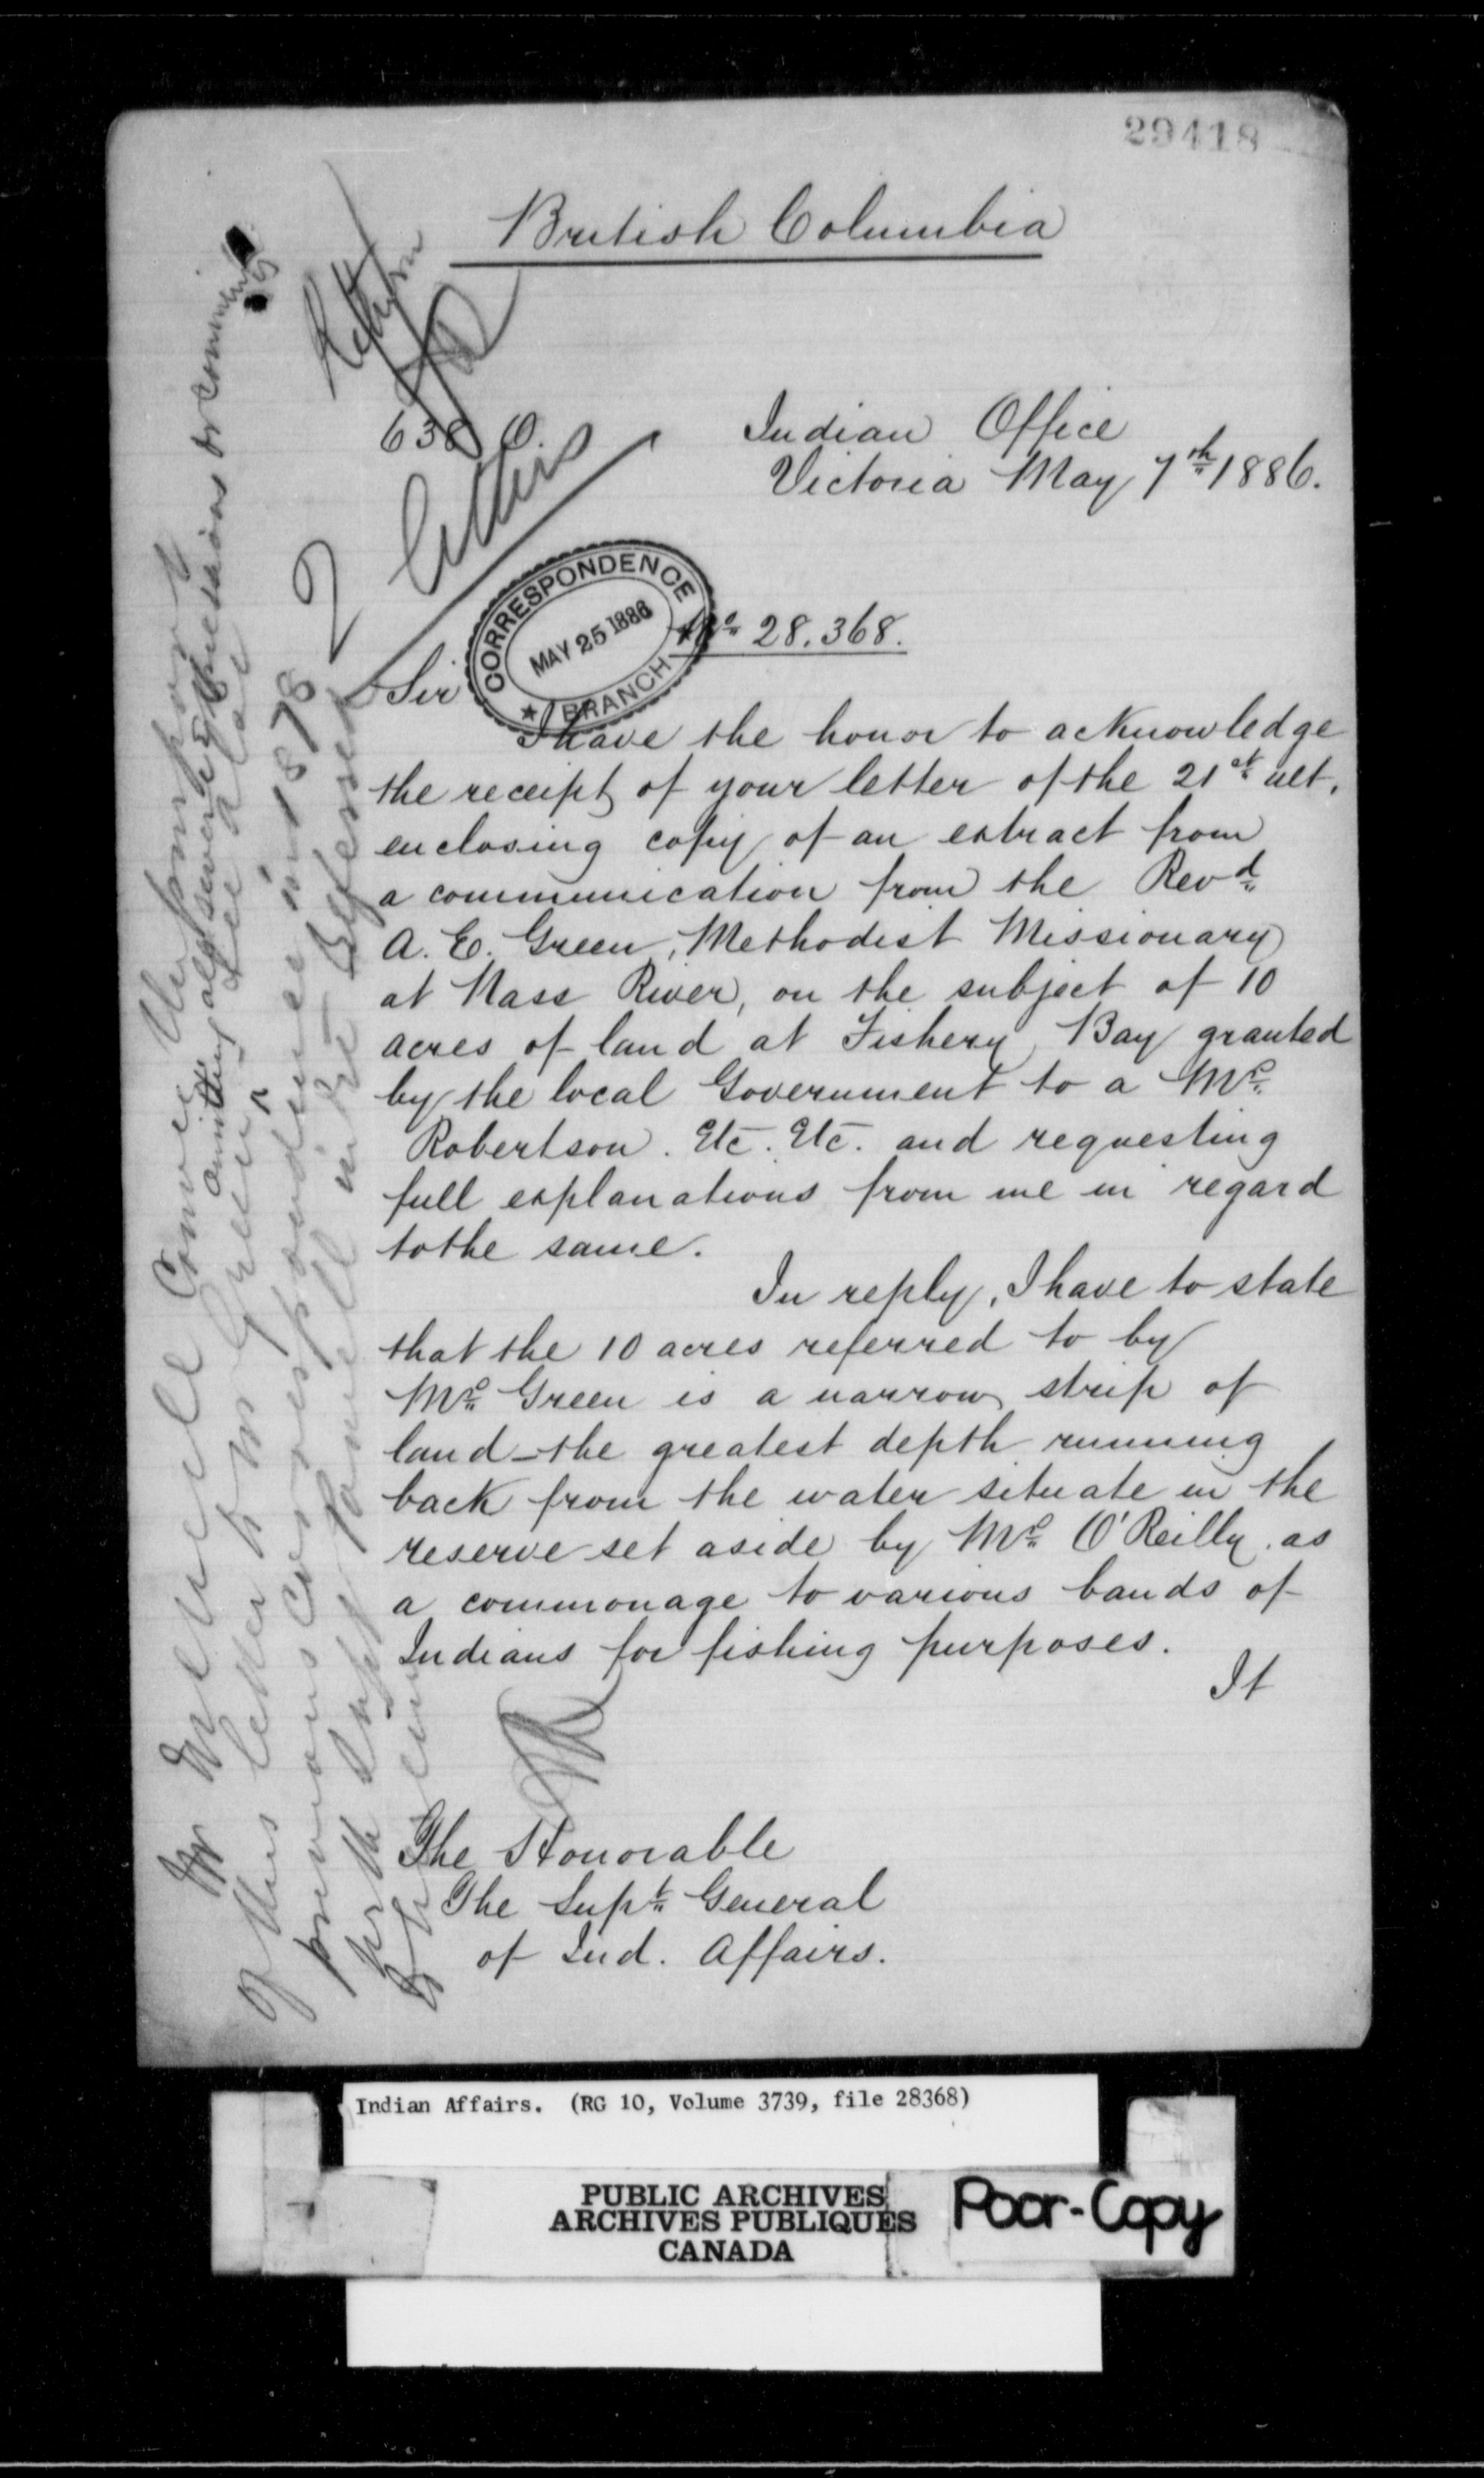 29418
British Columbia
638 O.
Indian Office
Victoria May 7th 1886.
2 Letters
CORRESPONDENCE
MAY 25 1886
BRANCH
No 28.368.
Sir
I have the honor to acknowledge
the receipt of your letter of the 21st ult.
enclosing copy of an extract from
a communication from the Revd
A. E. Green, Methodist Missionary
at Nass River, on the subject of 10
acres of land at Fishery Bay granted
by the local Government to a Mr
Robertson. Etc. Etc. and requesting
full explanations from me in regard
to the same.
In reply, I have to state
that the 10 acres referred to by
Mr Green is a narrow strip of
land - the greatest depth running
back from the water situate in the
reserve set aside by Mr O'Reilly, as
a commonage to various bands of
Indians for fishing purposes.
It
The Honorable
The Supt General
of Ind. Affairs.
of this letter to Mr Green
previous correspondence in 1878
Indian Affairs. (RG 10, Volume 3739, file 28368)
PUBLIC ARCHIVES
ARCHIVES PUBLIQUES
CANADA
Poor-Copy